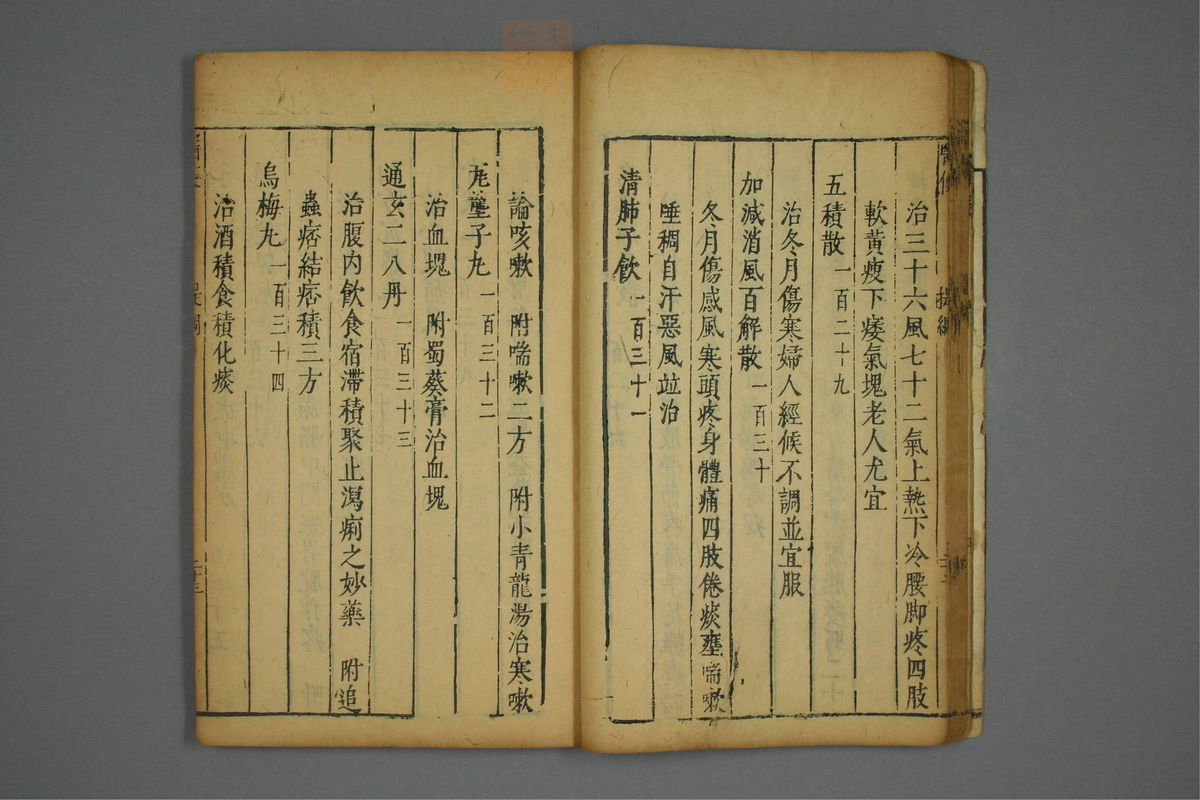 治三十六風七十二氣上熱下冷腰脚疼四肢
軟黃瘦下痿氣塊老人尤宜
五積散 一百二十九
治冬月傷寒婦人經候不調並宜服
加減消風百解散 一百三十
冬月傷感風寒頭疼身體痛四肢倦痰壅喘嗽
唾稠自汗惡風竝治
清肺子飲 一百三十一
論咳嗽 附喘嗽二方 附小青龍湯治寒嗽
瓦壟子丸 一百三十二
治血塊 附蜀葵膏治血塊
通玄二八丹 一百三十三
治腹內飲食宿滯積聚止瀉痢之妙藥 附追
蟲痞結痞積三方
烏梅丸 一百三十四
治酒積食積化痰